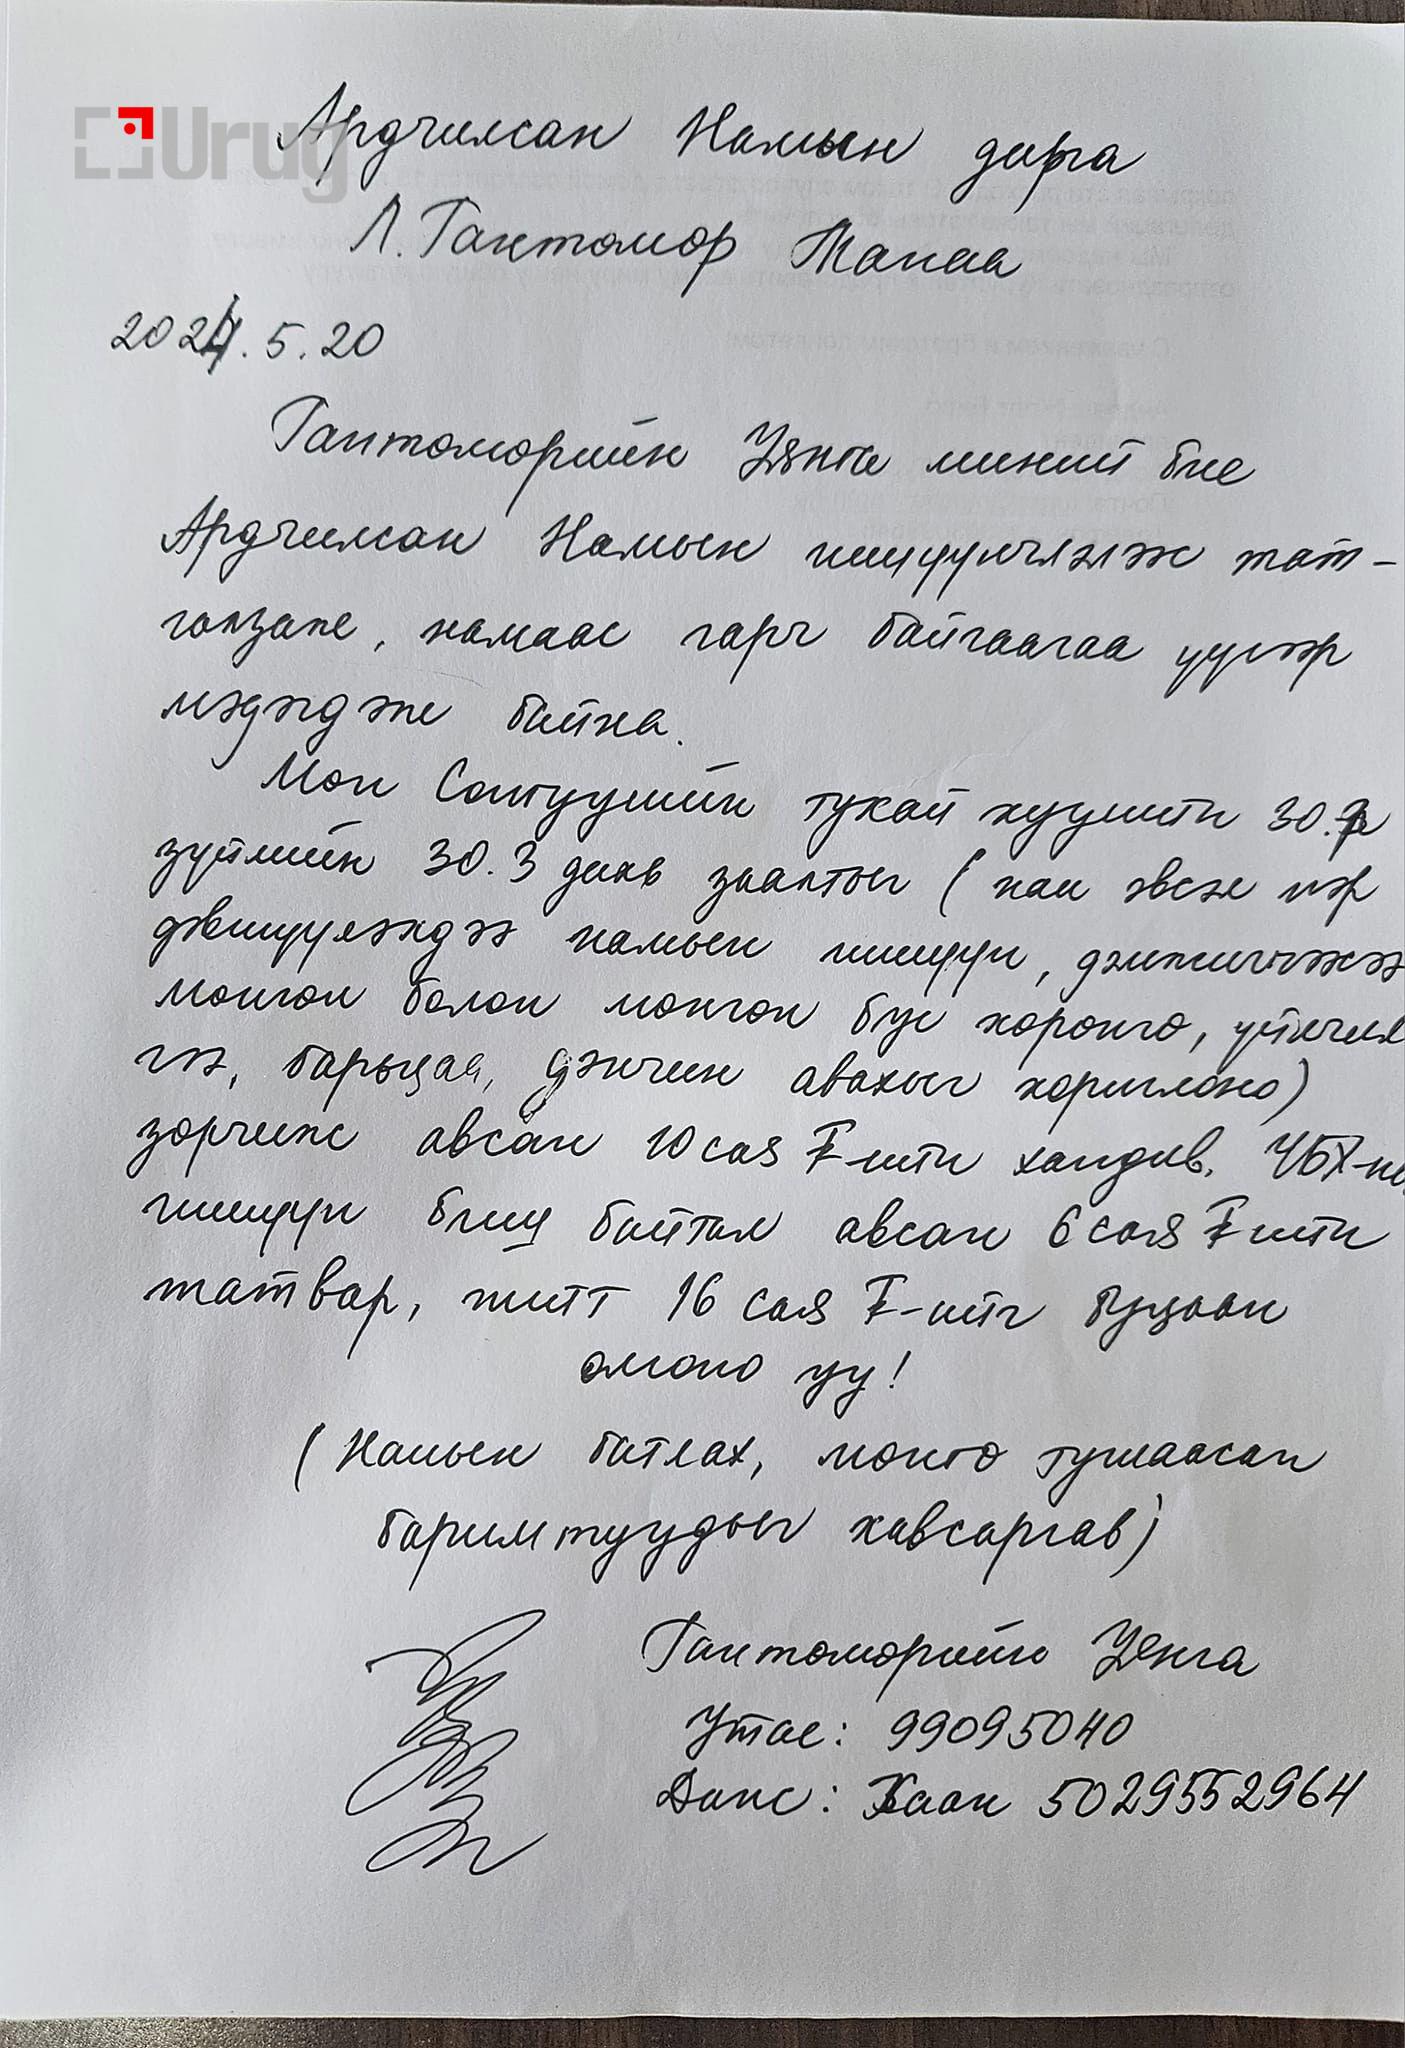 Urug
Ардчилсан Намын дарга
Л. Гантөмөр Танаа
2024.5.20
Гантөмөрийн Уянга миний бие
Ардчилсан Намын гишүүнчлэлээс тат-
галзаж, намаас гарч байгаагаа үүгээр
мэдэгдэж байна.
Мөн Сонгуулийн тухай хуулийн 30.
зүйлийн 30.3 дахь заалтыг (нам эвсэл нэр
дэвшүүлэхдээ намын гишүүн, дэмжигчээс
мөнгөн болон мөнгөн бус хөрөнгө, үйлчил
гээ, барьцаа, дэнчин авахыг хориглоно)
зөрчиж авсан 10 сая ₮-ийн хандив, ҮБХ-ны
гишүүн биш байтал авсан 6 сая ₮ийн
татвар, нийт 16 сая ₮-ийг буцаан
олгоно уу!
(Намын батлах, мөнгө тушаасан
баримтуудыг хавсаргав)
Гантөмөрийн Уянга
Утас: 99095040
Данс: Хаан 5029552964